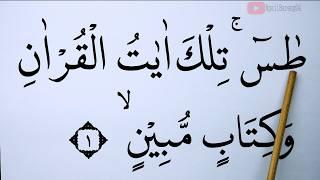 طٰسٓ ۚ تِلْكَ اٰيٰتُ الْقُرْاٰنِ
وَكِتَابٍ مُّبِيْنٍ ۙ ۝١